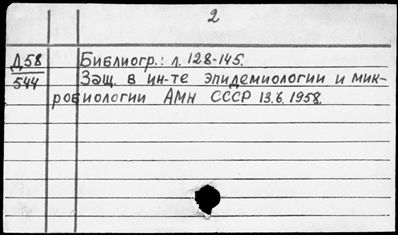 2
Д58 Библиогр.: л. 128-145.
544 Защ. в ин-те эпидемиологии и мик-
робиологии АМН СССР 13.6.1958.